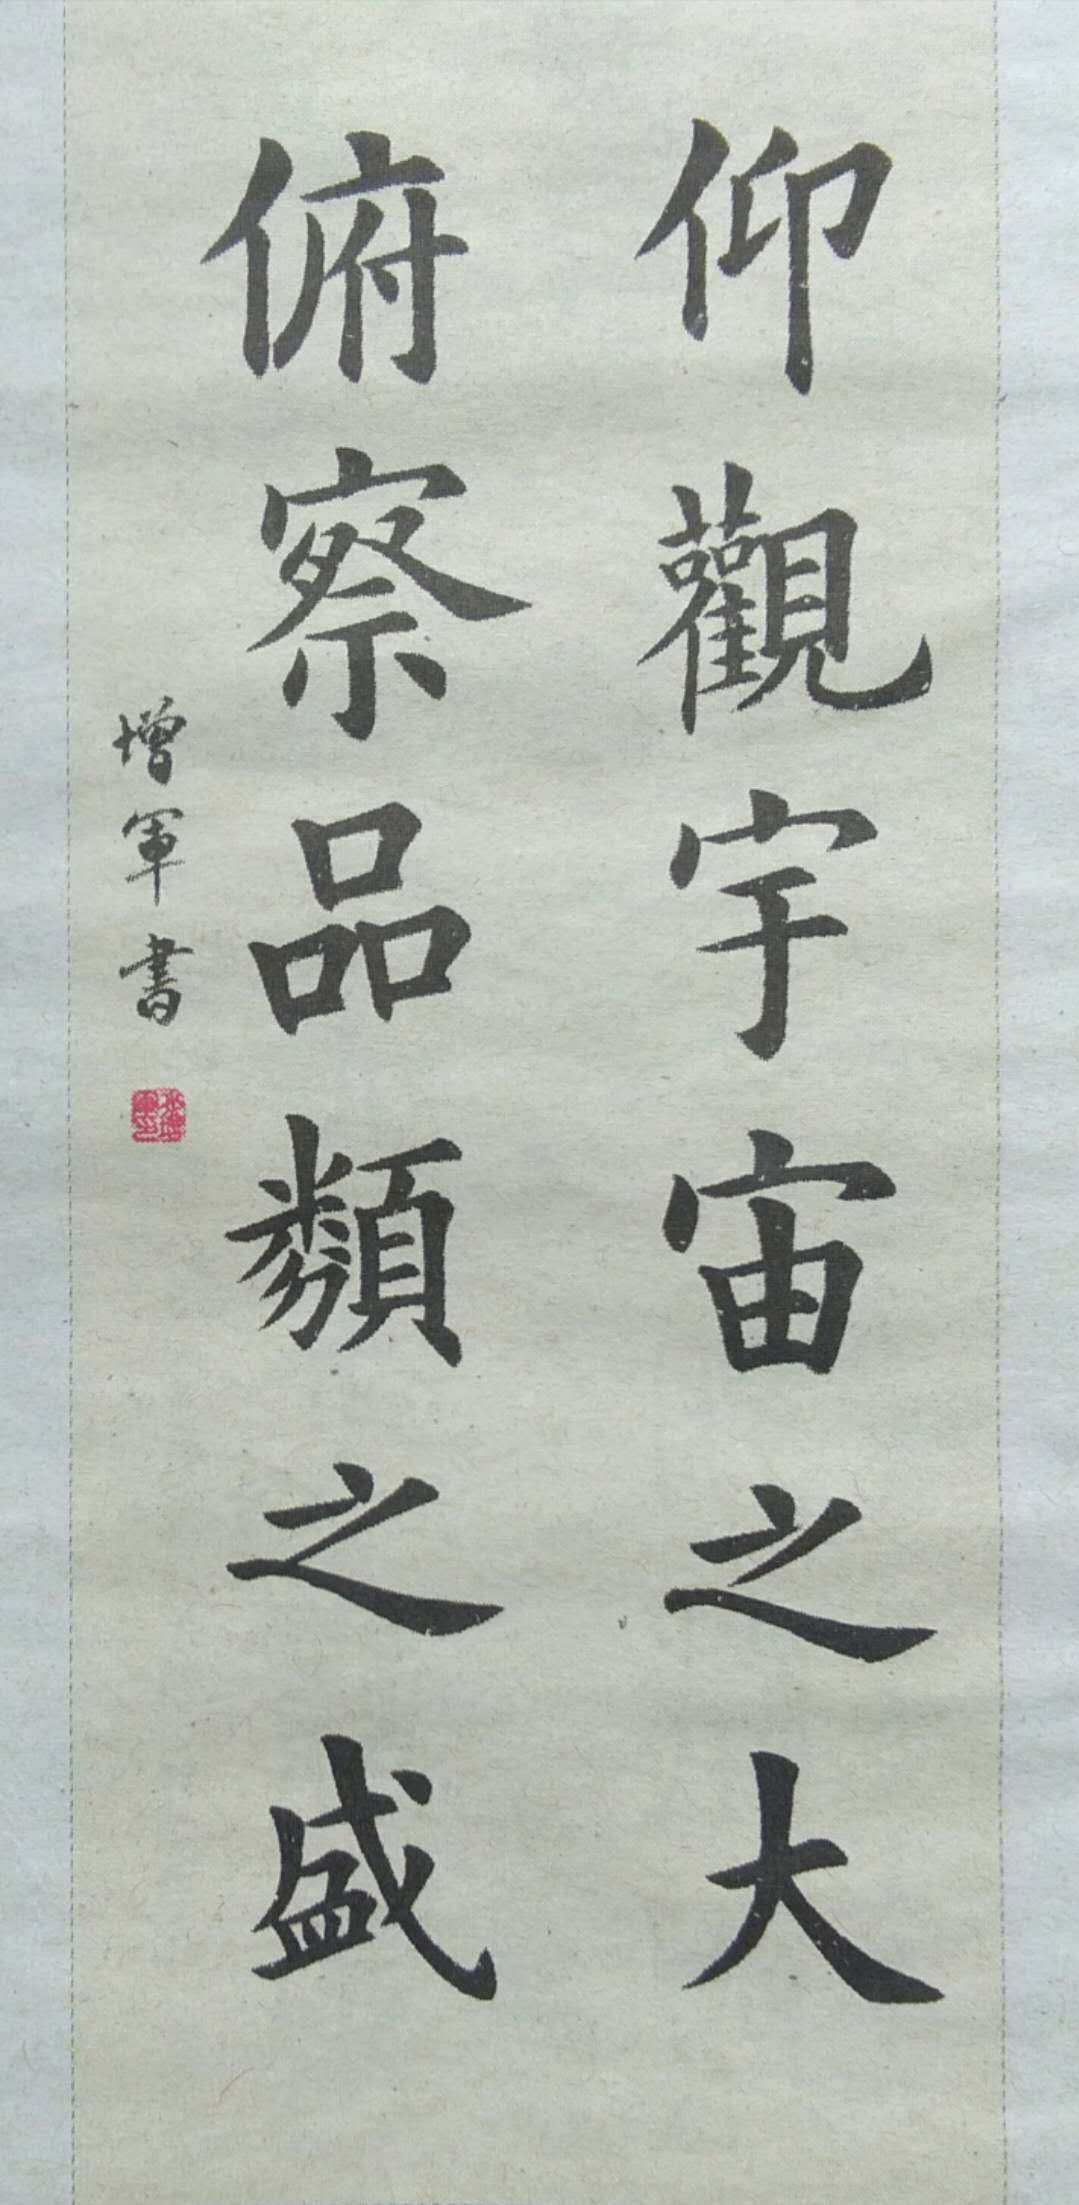 仰觀宇宙之大
俯察品類之盛
增軍書